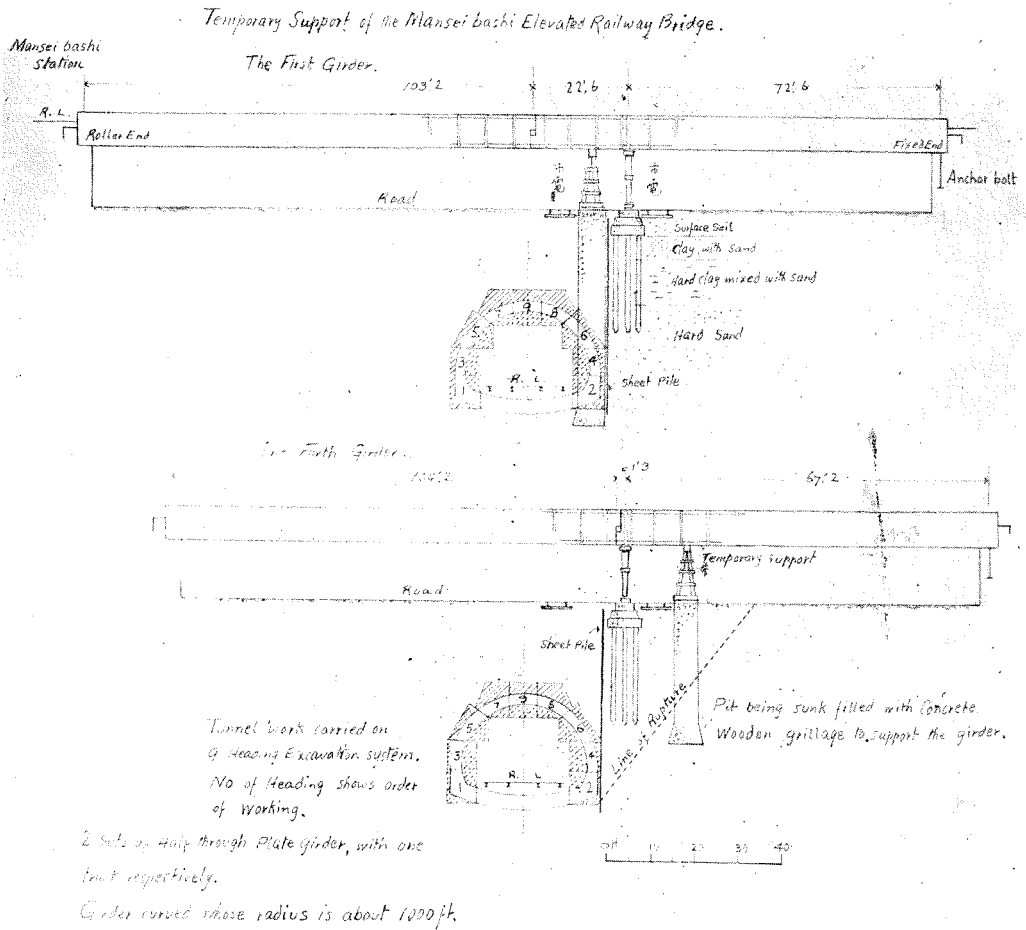 Temporary Support of the Mansei bashi Elevated Railway Bridge.
Mansei bashi
Station
The First Girder.
103'.2
22'.6
72'.6
R. L.
Roller End
Fixed End
Anchor bolt
Road
Surface Soil
Clay with Sand
Hard clay mixed with sand
Hard Sand
9
8
5
6
3
4
1
R. L.
2
Sheet Pile
Forth Girder.
104'.2
1'.3
67'.2
Temporary support
Road
Sheet Pile
Line of Rupture
7
9
8
5
6
3
4
1
R. L.
2
Pit being sunk filled with Concrete.
Wooden grillage to support the girder.
Tunnel work carried on
9 Heading Excavation system.
No of Heading shows order
of Working.
2 Sets of Half through Plate Girder, with one
respectively.
Girder curved whose radius is about 1000 ft.
0 ft 10 20 30 40